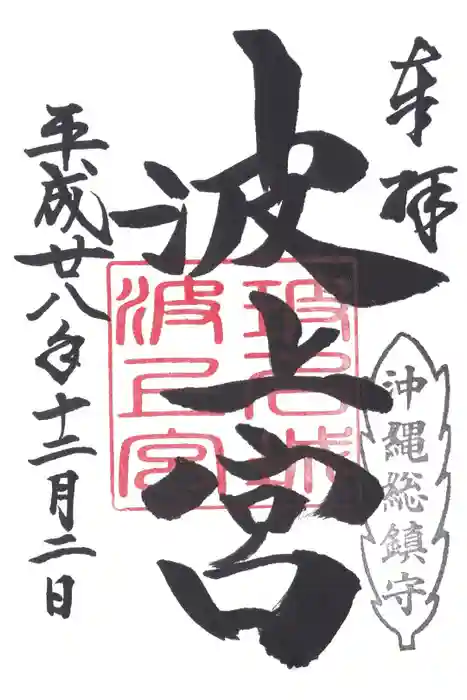 奉拝
沖縄総鎮守
波上宮
平成廿八年十二月二日
波上宮